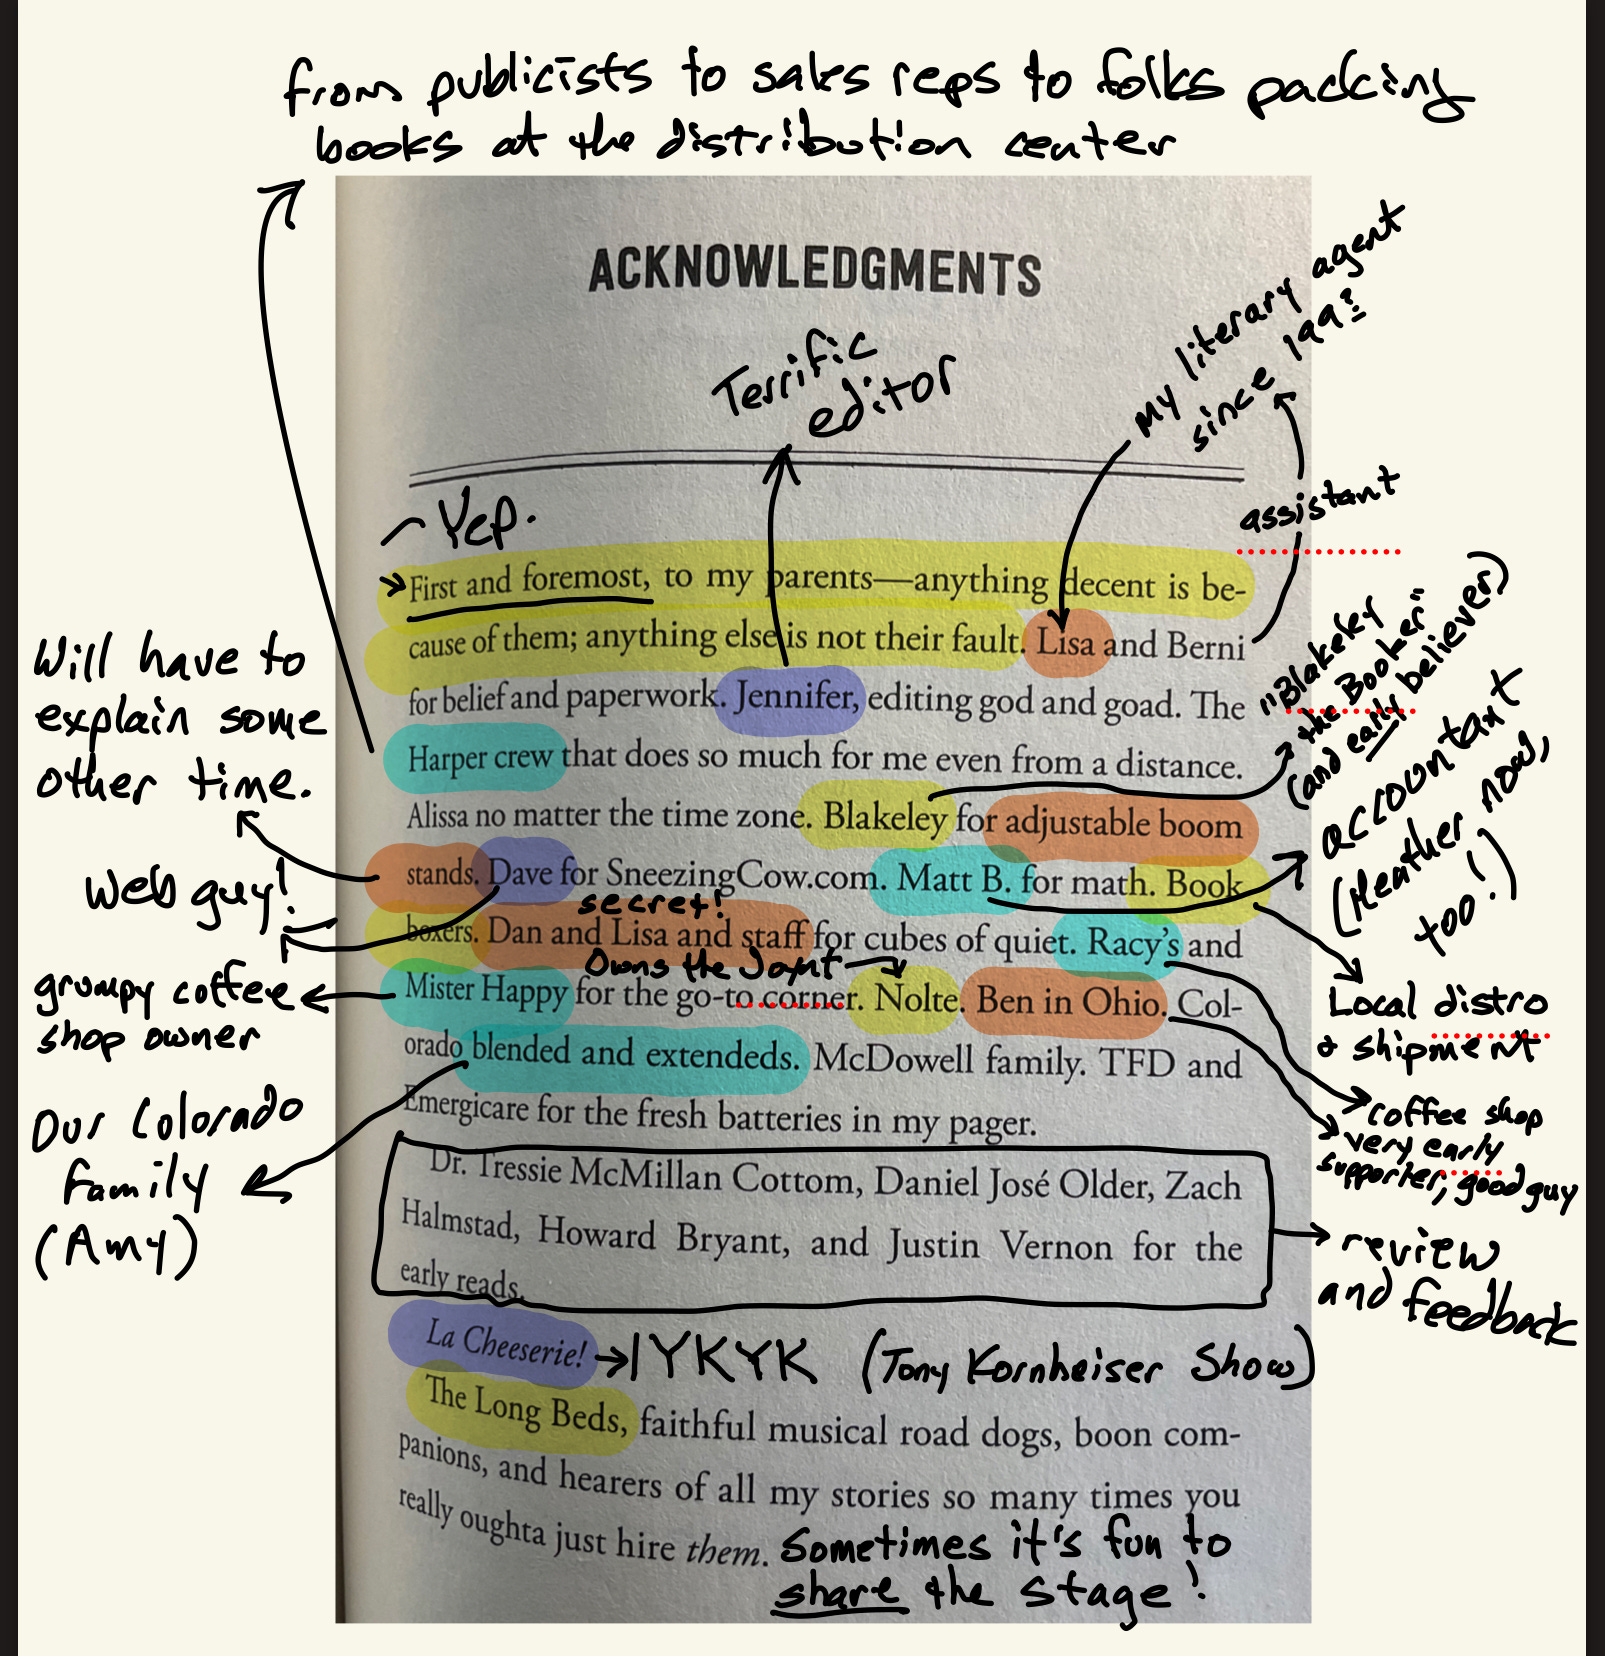 from publicists to sales reps to folks packing
books at the distribution center
ACKNOWLEDGMENTS
my literary agent
since 199?
Terrific
editor
assistant
Yep.
First and foremost, to my parents—anything decent is be-
cause of them; anything else is not their fault. Lisa and Berni
for belief and paperwork. Jennifer, editing god and goad. The
Harper crew that does so much for me even from a distance.
Alissa no matter the time zone. Blakeley for adjustable boom
stands. Dave for SneezingCow.com. Matt B. for math. Book
secret!
boxers. Dan and Lisa and staff for cubes of quiet. Racy's and
Owns the Joynt
Mister Happy for the go-to corner. Nolte. Ben in Ohio. Col-
orado blended and extendeds. McDowell family. TFD and
Emergicare for the fresh batteries in my pager.
Dr. Tressie McMillan Cottom, Daniel José Older, Zach
Halmstad, Howard Bryant, and Justin Vernon for the
early reads.
La Cheeserie! IYKYK (Tony Kornheiser Show)
The Long Beds, faithful musical road dogs, boon com-
panions, and hearers of all my stories so many times you
really oughta just hire them. Sometimes it's fun to
share the stage!
Will have to
explain some
other time.
Web guy!
grumpy coffee
shop owner
Our Colorado
family
(Amy)
"Blakeley
the Booker"
(and early believer)
accountant
(Heather now,
too!)
Local distro
+ shipment
coffee shop
very early
supporter, good guy
review
and feedback